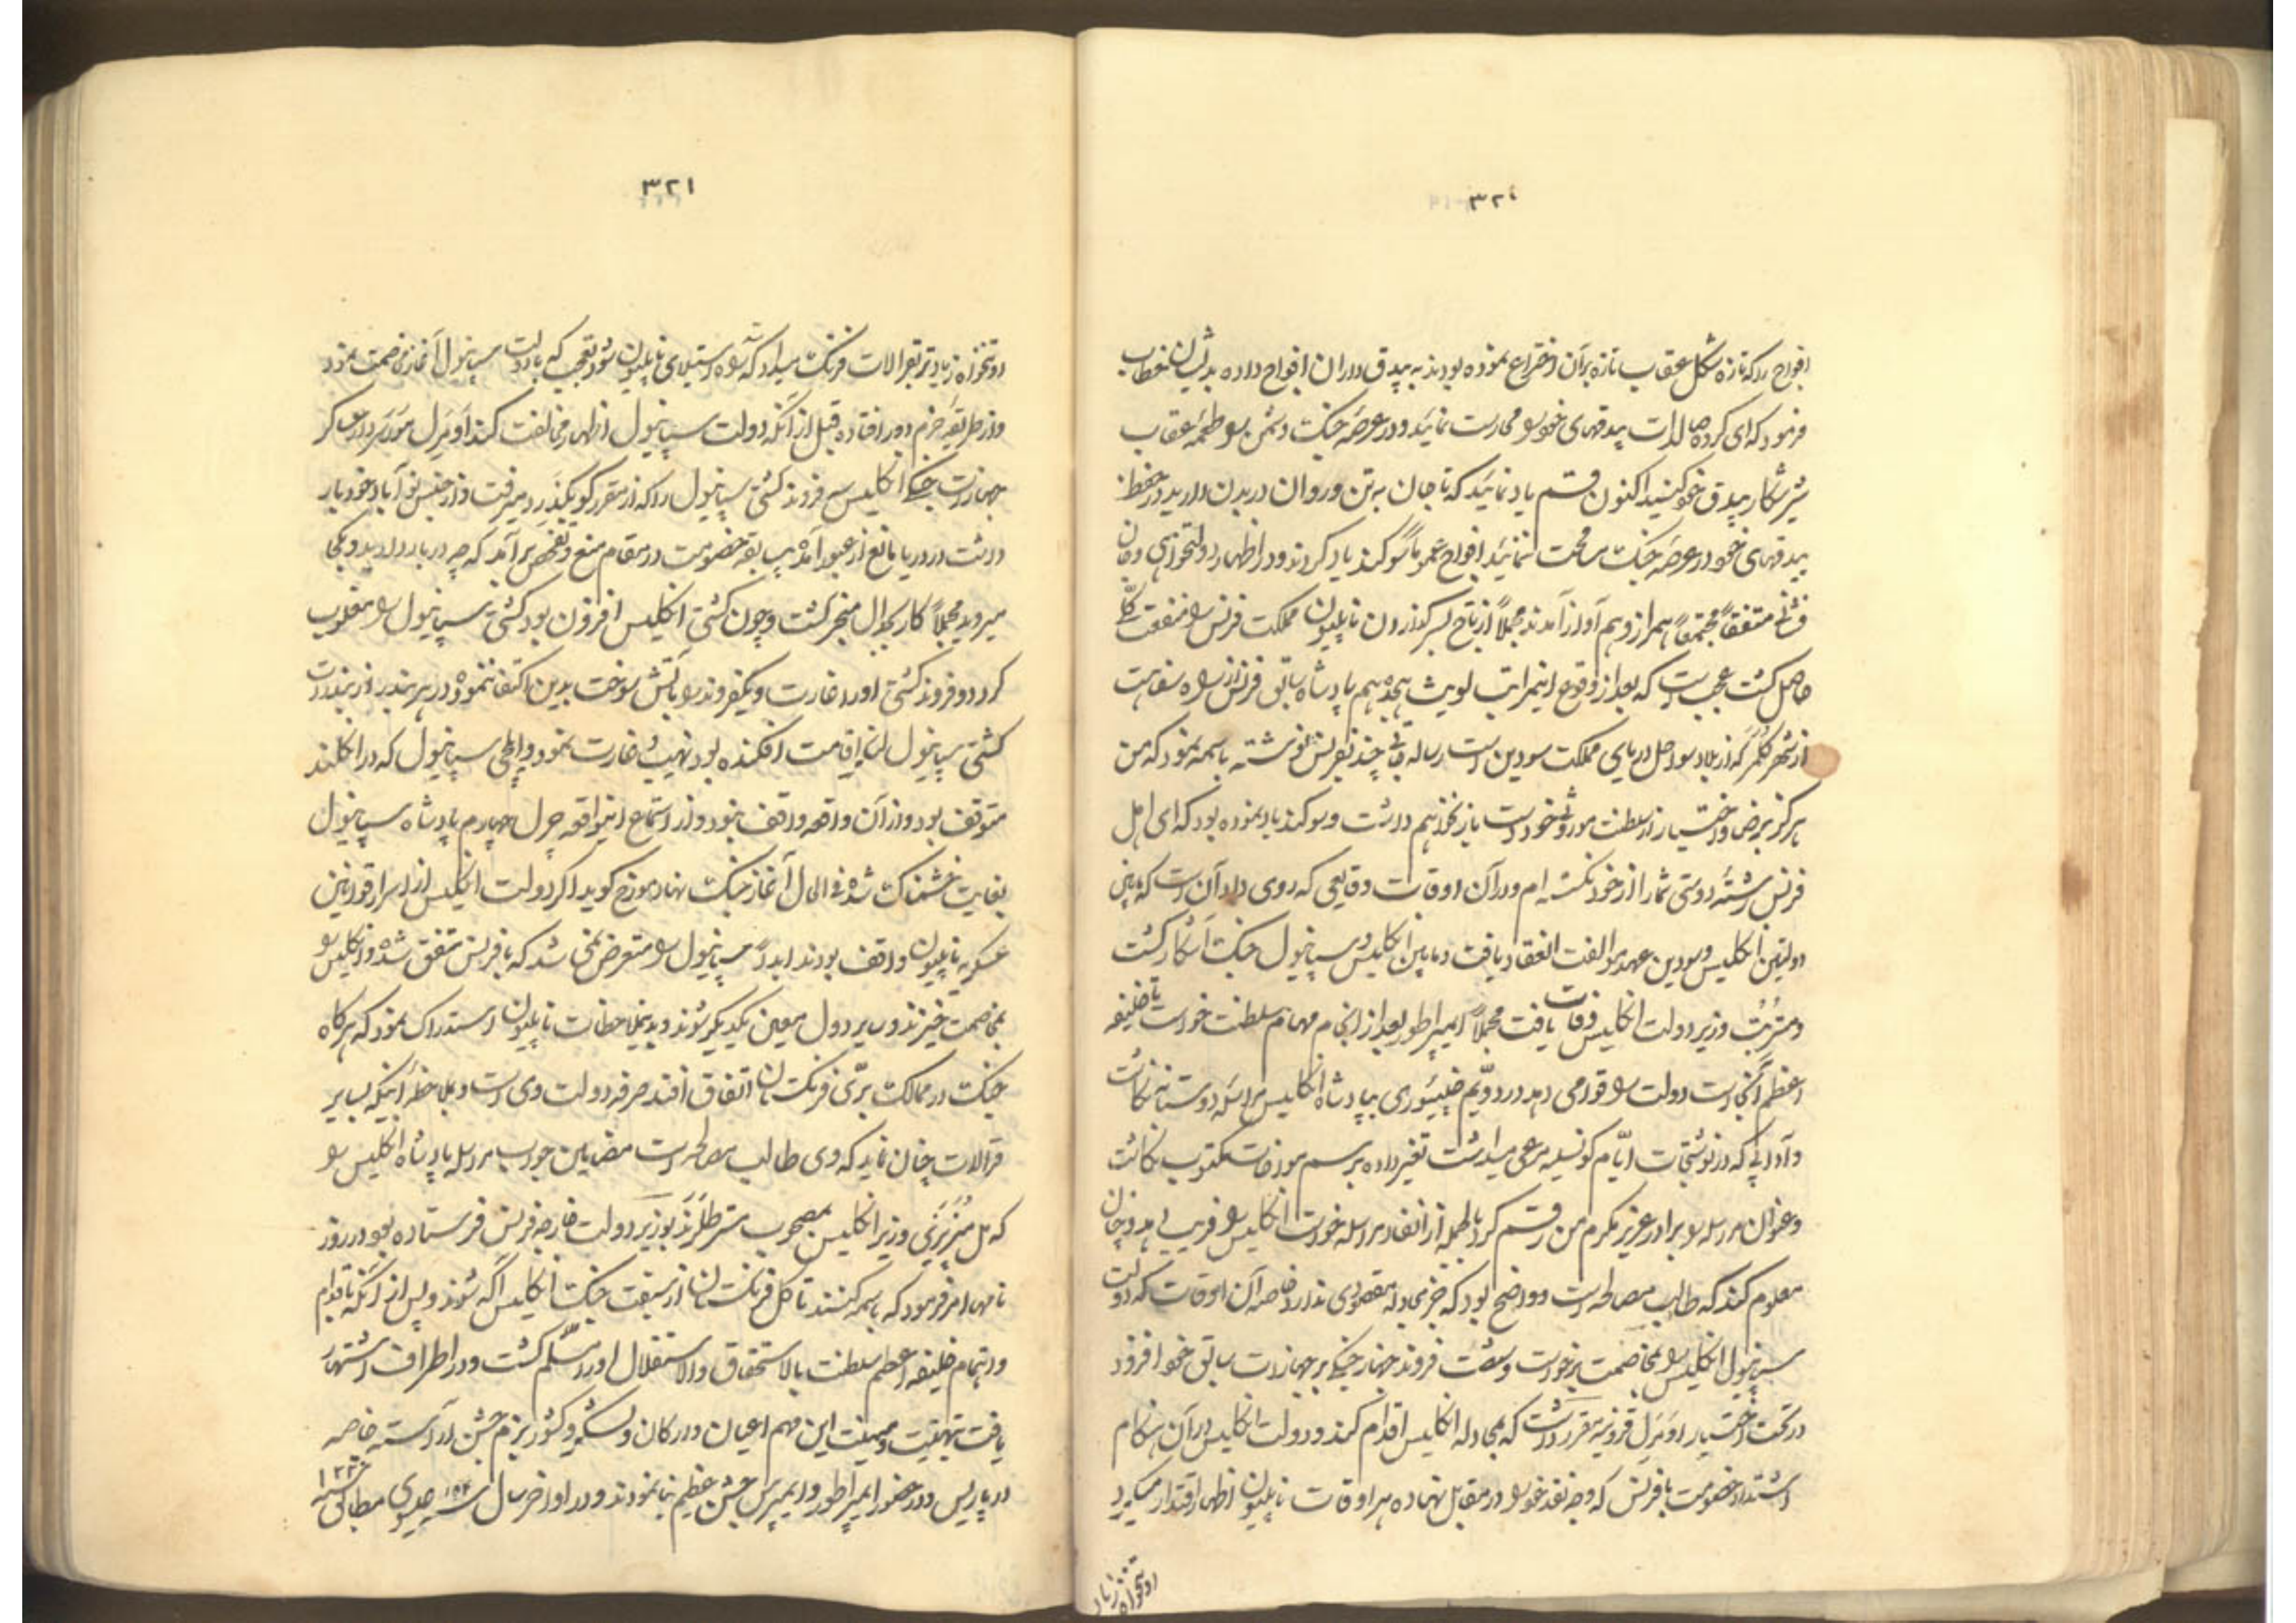 ۳۲۰
افواج را که تازه شکل عقاب تازه بر آن اختراع نموده بودند به بیدق داران افواج داده بدیشان خطاب
فرمود که ای کرده بیدقهای خود را محارست نمائید و در عرصه جنک دشمن را طعمه عقاب
شیر شکار بیدق خود کنید اکنون قسم یاد نمائید که تا جان به تن و روان در بدن دارید در حفظ
بیدقهای خود در عرصه جنک مسامحت ننمائید افواج عموماً سوکند یاد کردند و در اظهار دولتخواهی و جان
فشانی متفقاً مجتمعاً هم راز و هم آواز آمدند مجملاً از تاج بسر کذاردن ناپلیون مملکت فرنس را منفعت کلی
حاصل کشت عجب است که بعد از وقوع اینمراتب لویث هیجدهم پادشاه سابق فرنس از راه سفاهت
از شهر کلمر که از بلاد سواحل دریای مملکت سودین است رساله چند بفرنس نوشته باسمه نمود که من
هرکز برضا و اختیار از سلطنت موروثی خود دست باز نخواهم داشت و سوکند یاد نموده بود که ای اهل
فرنس رشته دوستی شما را از خود نکسسته ام و در آن اوقات وقایعی که روی داد آن است که مابین
دولتین انکلیس و سودین عهد موالفت انعقاد یافت و مابین انکلیس و سپانیول جنک آشکار کشت
و مستر پت وزیر دولت انکلیس وفات یافت مجملاً ایمپراطور بعد از انجام مهام سلطنت خواست تا خلیفه
اعظم آنجاست دولت را قوامی دهد در دویم جنیوری بپادشاه انکلیس مراسله دوستانه نکاشت
و آدابی که در نوشتجات ایام کونسلیه مرعی میداشت تغیر داده برسم مورخان مکتوب نکاشت
و عنوان مراسله را برادر عزیز مکرم من رقم کرد بالجمله از انفاد مراسله خواست انکلیس را فریب دهد و چنان
معلوم کند که طالب مصالحه است و واضح بود که جز مجادله مقصودی ندارد خاصه آن اوقات که دولت
سپانیول انکلیس را بمخاصمت برخواست و شصت فروند جهاز جنکی بر جهازات سابق خود افزود
در تحت اختیار اومرل قرونیه مقرر داشت که بمجادله انکلیس اقدام کند و دولت انکلیس در آن هنکام
اشتداد خصومت با فرنس که وجه نقد خود را در مقابل نهاده هر اوقات ناپلیون اظهار اقتدار میکرد
او تنخواه زیاد
۳۲۱
او تنخواه زیادتر بقرالات فرنک میداد که سد راه استیلای ناپلیون شود تعجب که با دولت سپانیول آغاز مخاصمت نمود
و از طریقه حزم دور افتاده قبل از آنکه دولت سپانیول اظهار مخالفت کند اومرل مور سردار عساکر
جهازات جنکی انکلیس سه فروند کشتی سپانیول را که از مقرر کو بکدر میرفت و از جنس نو آباد خود بار
داشت در دریا مانع از عبور آمده بی سابقه خصومت در مقام منع و تفحص برآمد که چه در بار دارید و بکجا
میروید مجملاً کار بجدال منجر کشت و چون کشتی انکلیس افزون بود کشتی سپانیول را مغلوب
کرد دو فروند کشتی او را غارت و یکفروند را بآتش سوخت بدین اکتفا ننموده در هر بندر از بندرات
کشتی سپانیول لنکر اقامت افکنده بود نهیب و غارت نمود و ایلچی سپانیول که در انکلند
متوقف بود و از آن واقعه واقف نبود و از استماع اینواقعه چرل چهارم پادشاه سپانیول
بغایت خشمناک شده فی الحال آغاز جنک نهاد مورخ کوید اکر دولت انکلیس از اسرار قوانین
عسکریه ناپلیون واقف بودند ابداً سپانیول را متعرض نمی شد که با فرنس متفق شده و انکلیس را
بمخاصمت خیزند و سایر دول معین یکدیکر شوند و بدینملاحظات ناپلیون استدراک نمود که هرکاه
جنک در ممالک برّی فرنکستان اتفاق افتد صرفه دولت وی است و بملاحظه اینکه بسایر
قرالات چنان نماید که وی طالب مصالحه است مضامین جواب مراسله پادشاه انکلیس را
که وزیر انکلیس بمصحوب مستر طلرند بوزیر دولت خارجه فرنس فرستاده بود در روز
نامها امر فرمود که باسمه کنند تا کل فرنکستان از سبقت جنک انکلیس آکه شوند و پس از آنکه باقدام
و اهتمام خلیفه اعظم سلطنت بالاستحقاق و الاستقلال او را مسلّم کشت و در اطراف اشتهار
یافت بتهنیت و میمنت این مهم اعیان و ارکان و لشکر و کشور بزم جشن آراسته خاصه
در پاریس و در حضور ایمپراطور و ایمپرس جشن عظیم بنا نمودند و در اواخر سال عیسوی مطابق